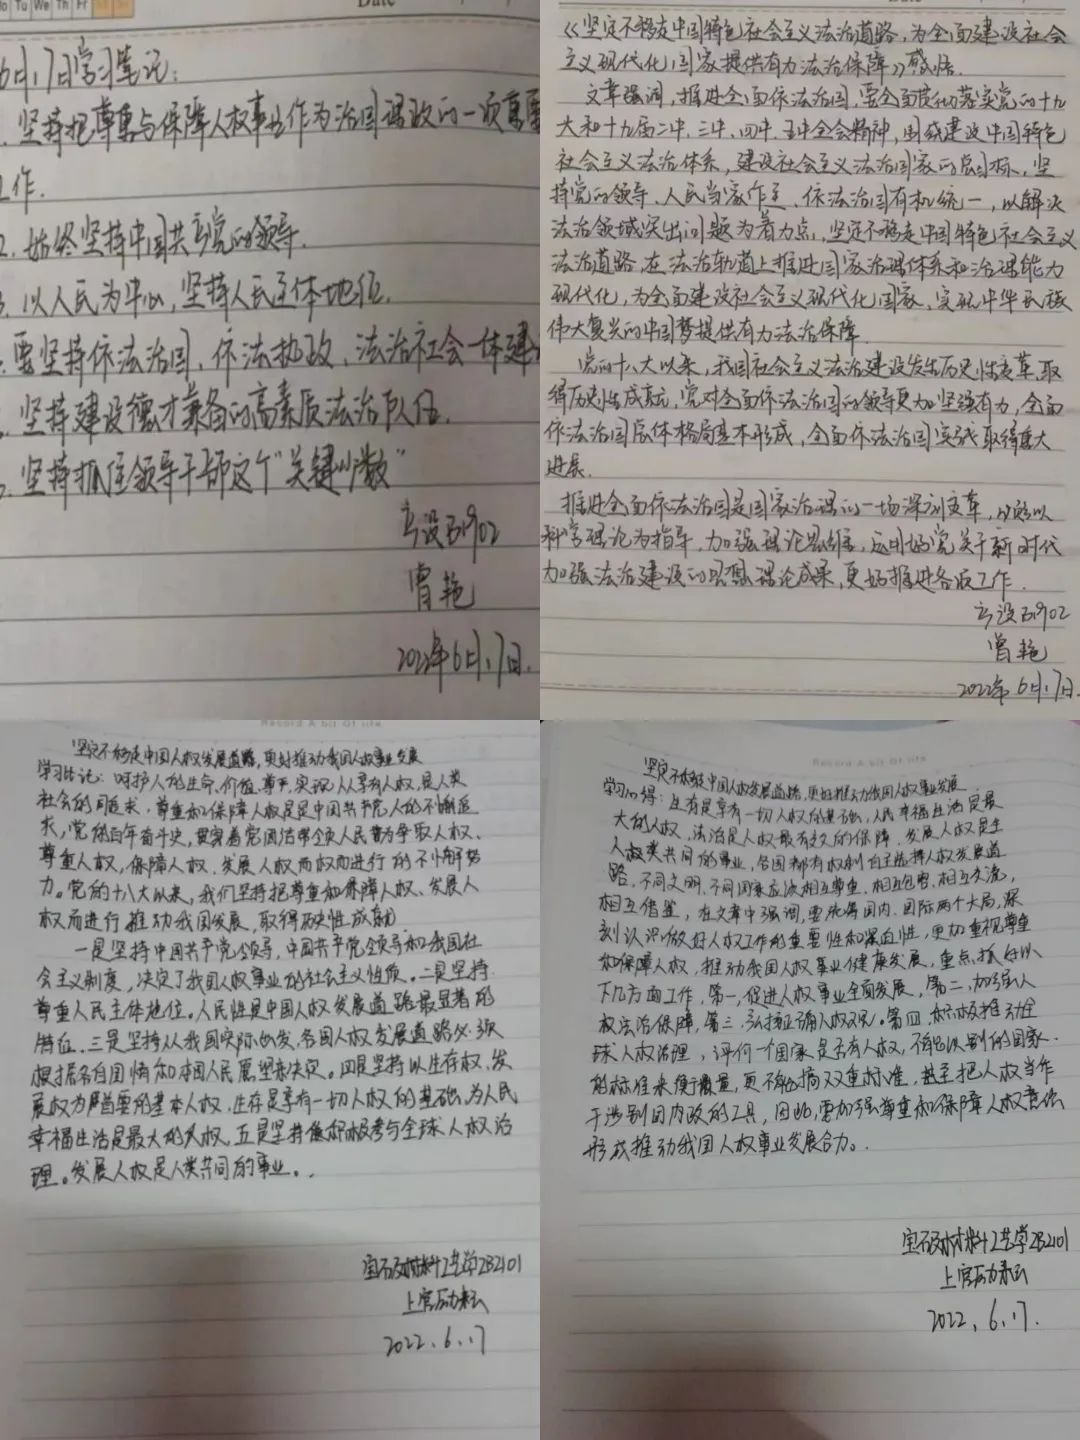 Mo Tu We Th Fr
Date
6月17日学习笔记：
1. 坚持把尊重与保障人权事业作为治国理政的一项重要
工作.
2. 始终坚持中国共产党的领导.
3. 以人民为中心, 坚持人民主体地位.
要坚持依法治国、依法执政、法治社会一体建
坚持建设德才兼备的高素质法治队伍.
坚持抓住领导干部这个“关键少数”
产设B1902
曾艳
2022年6月17日.
《坚定不移走中国特色社会主义法治道路, 为全面建设社会
主义现代化国家提供有力法治保障》感悟.
文章强调, 推进全面依法治国, 要全面贯彻落实党的十九
大和十九届二中、三中、四中、五中全会精神, 围绕建设中国特色
社会主义法治体系, 建设社会主义法治国家的总目标, 坚
持党的领导、人民当家作主、依法治国有机统一, 以解决
法治领域突出问题为着力点, 坚定不移走中国特色社会主义
法治道路, 在法治轨道上推进国家治理体系和治理能力
现代化, 为全面建设社会主义现代化国家, 实现中华民族
伟大复兴的中国梦提供有力法治保障.
党的十八大以来, 我国社会主义法治建设发生历史性变革, 取
得历史性成就, 党对全面依法治国的领导更加坚强有力, 全面
依法治国总体格局基本形成, 全面依法治国实践取得重大
进展.
推进全面依法治国是国家治理的一场深刻变革, 必须以
科学理论为指导, 加强理论思维, 运用好党关于新时代
加强法治建设的思想理论成果, 更好推进各项工作.
产设B1902
曾艳
2022年6月17日
Record A bit Of life
坚定不移走中国人权发展道路, 更好推动我国人权事业发展
学习笔记：呵护人的生命、价值、尊严, 实现人人享有人权, 是人类
社会的同追求, 尊重和保障人权是是中国共产党人的不懈追
求, 党的百年奋斗史, 贯穿着党团结带领人民为争取人权、
尊重人权, 保障人权、发展人权而权而进行的不懈努
力。党的十八大以来, 我们坚持把尊重和保障人权、发展人
权而进行推动我国发展, 取得历史性成就
一是坚持中国共产党领导, 中国共产党领导和我国社
会主义制度, 决定了我国人权事业的社会主义性质。二是坚持
尊重人民主体地位。人民性是中国人权发展道路最显著的
特征. 三是坚持从我国实际出发, 各国人权发展道路必须
根据各自国情和本国人民愿望来决定。四是坚持以生存权、发
展权为首要的基本人权, 生存是享有一切人权的基础, 为人民
幸福生活是最大的人权, 五是坚持积极参与全球人权治
理。发展人权是人类共同的事业。.
宝石及材料工艺学ZB2101
上官励耘
2022、6.17
Record A bit Of life
坚定不移走中国人权发展道路, 更好推动我国人权事业发展
学习心得：生存是享有一切人权的基础, 人民幸福生活是最
大的人权, 法治是人权最有效的保障, 发展人权是全
人权类共同的事业, 各国都有权利自主选择人权发展道
路, 不同文明, 不同国家应该相互尊重、相互包容、相互交流,
相互借鉴, 在文章中强调, 要统筹国内、国际两个大局, 深
刻认识做好人权工作的重要性和紧迫性, 更加重视尊重
和保障人权, 推动我国人权事业健康发展, 重点抓好以
下几方面工作, 第一, 促进人权事业全面发展, 第二, 加强人
权法治保障, 第三, 弘扬正确人权观。第四, 积极推动全
球人权治理, 评价一个国家是否有人权, 不能以别的国家
的标准来衡量, 更不能搞双重标准, 甚至把人权当作
干涉别国内政的工具, 因此, 要加强尊重和保障人权意识
形成推动我国人权事业发展合力。.
宝石及材料工艺学ZB2101
上官励耘
2022、6.17.